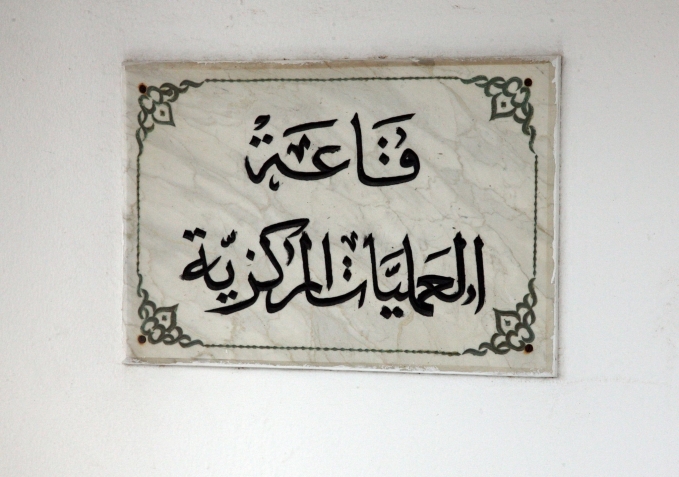 قَاعَة
العَمليَّات المركزيّة